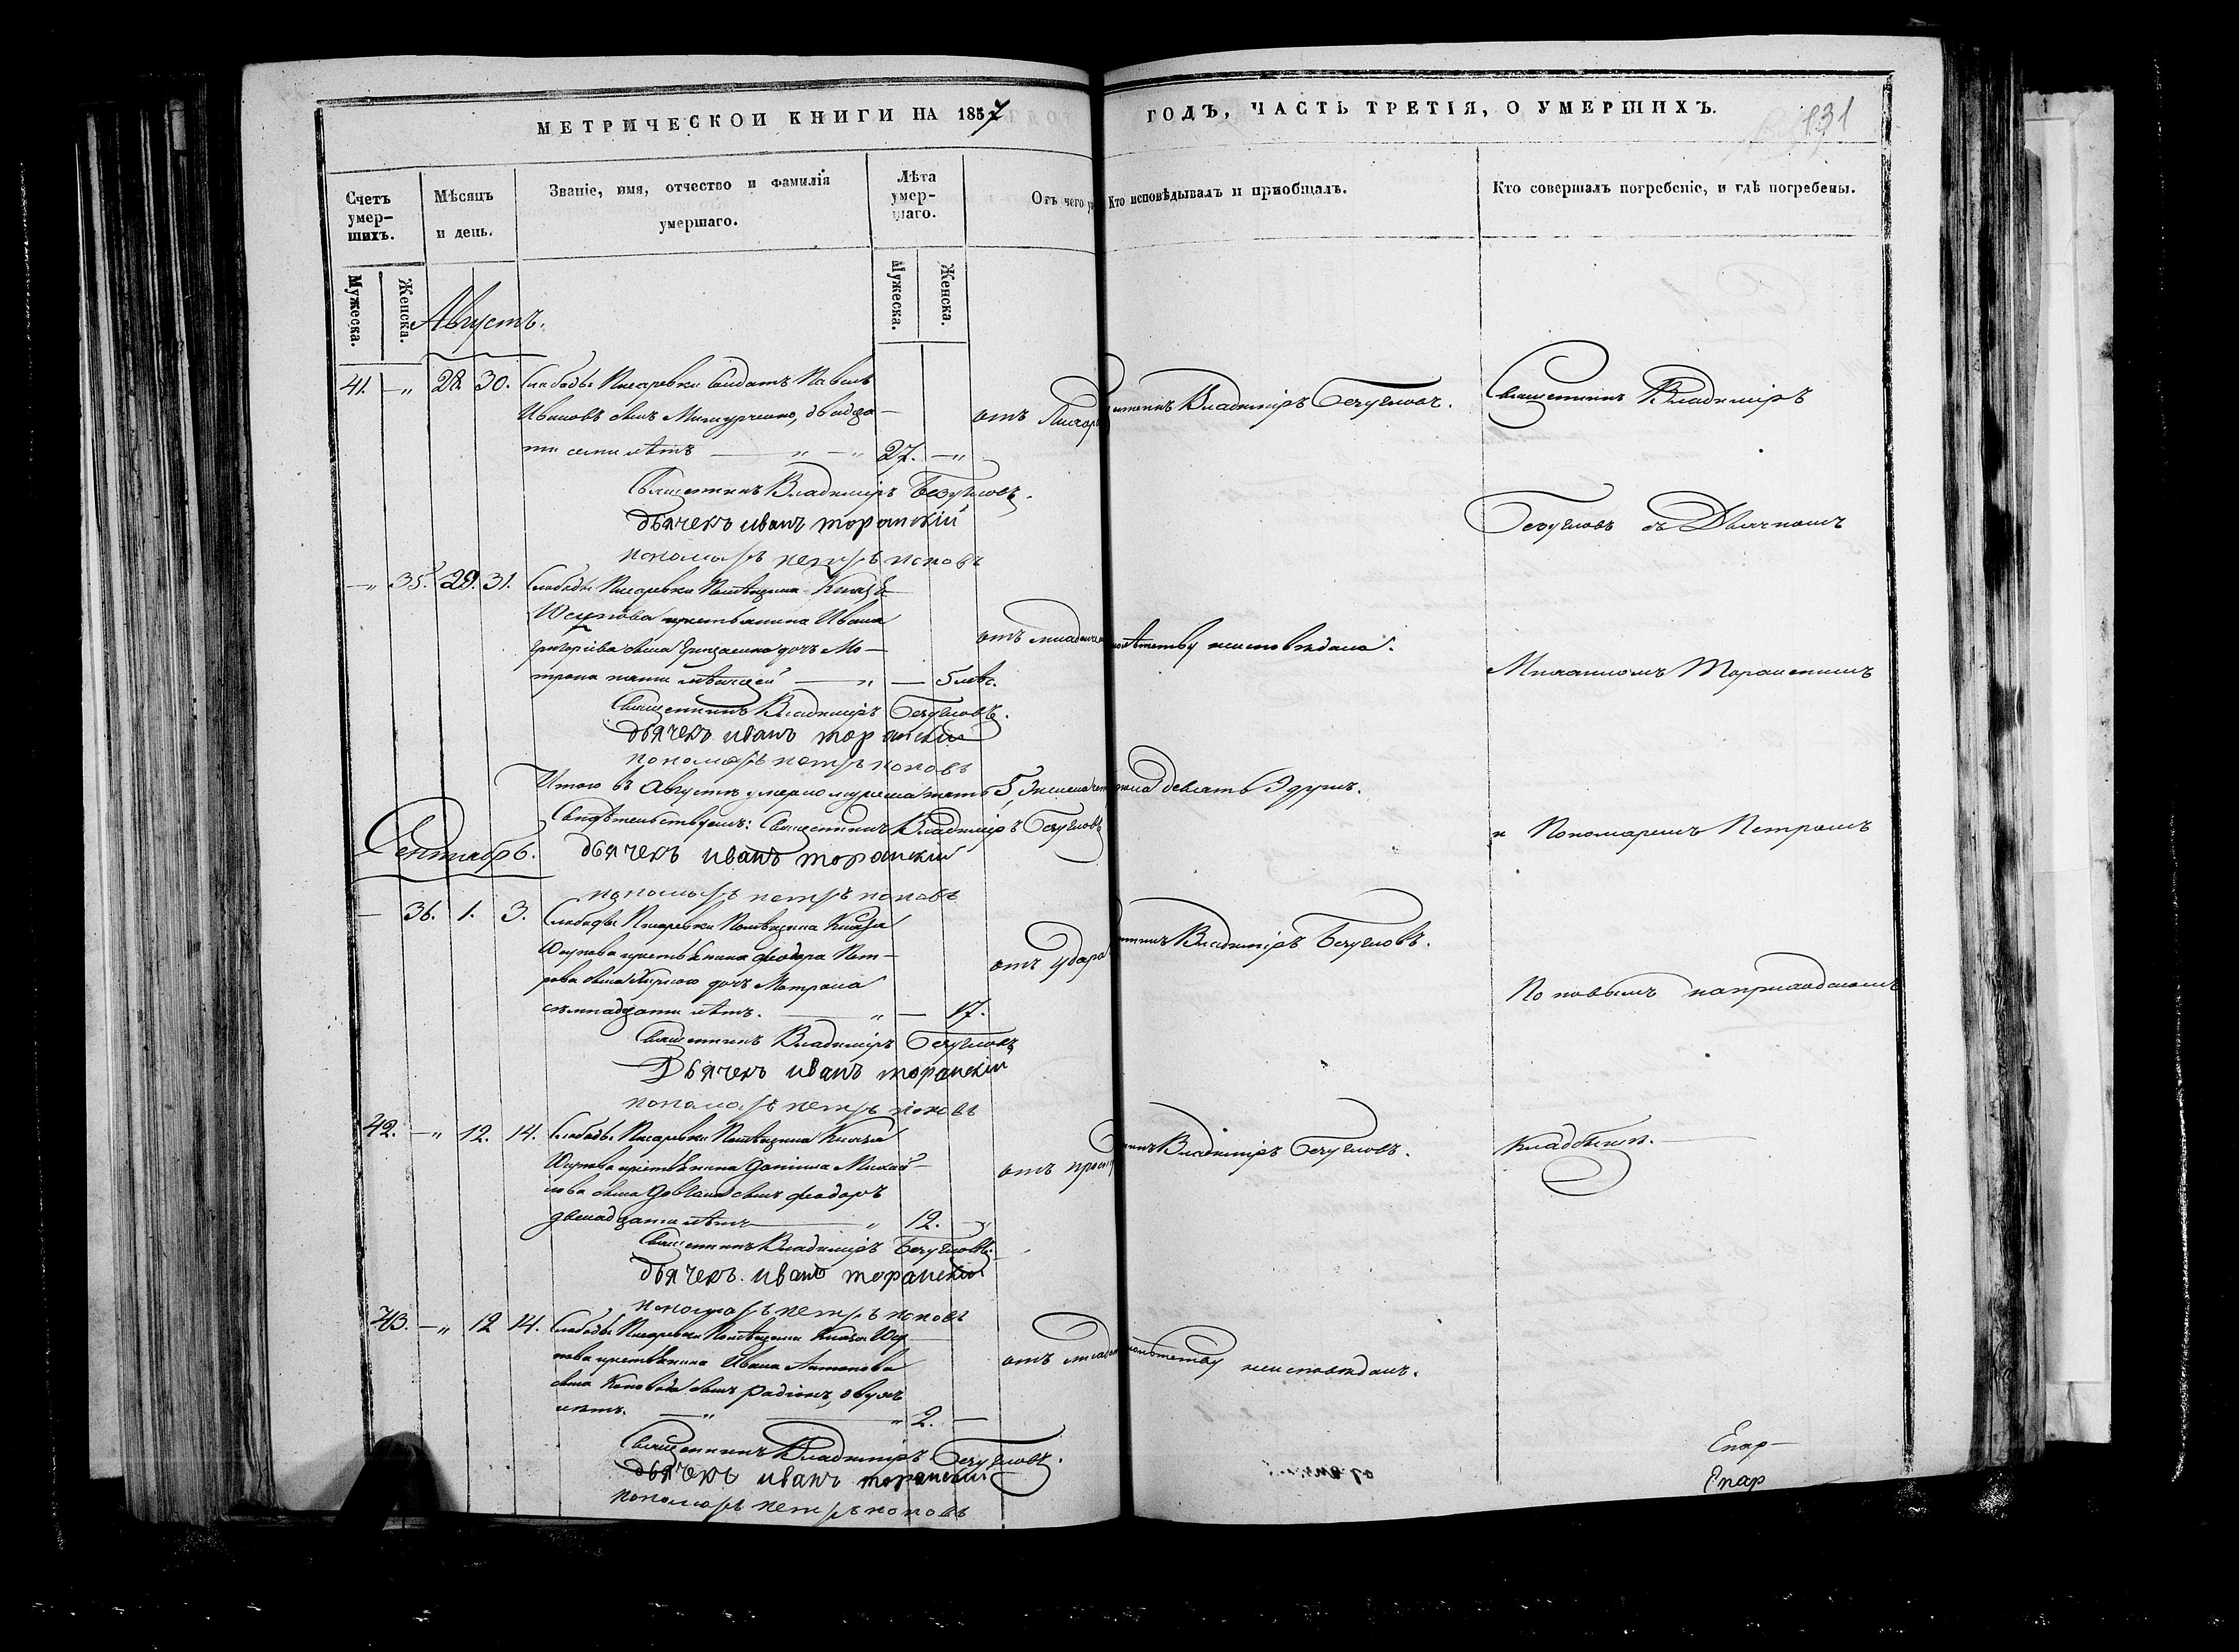 МЕТРИЧЕСКОЙ КНИГИ НА 1857
ГОДЪ, ЧАСТЬ ТРЕТІЯ, О УМЕРШИХЪ.
131
Счетъ умер-
шихъ.
Мѣсяцъ
и день.
Званіе, имя, отчество и фамилія
умершаго.
Лѣта
умер-
шаго.
Отъ чего
Кто исповѣдывалъ и пріобщалъ.
Кто совершалъ погребеніе, и гдѣ погребены.
Мужеска.
Женска.
Мужеска.
Женска.
Августъ.
41. — „ 28. 30. Слободы Писаревки Солдатъ Павелъ
Ивановъ сынъ Мишурченко, двадца-
ти семи лѣтъ — „ — „ 27. — „
отъ
Владиміръ Безугловъ.
Священникъ Владиміръ
Священникъ Владиміръ Безугловъ.
дьячекъ иванъ торанскій
пономарь петръ поповъ
Безугловъ съ Дьячкомъ
— „ 35. 29. 31. Слободы Писаревки Помѣщика Князя
Юсупова крестьянина Ивана
Григоріева сына дочь Мо-
трона пяти мѣсяцей — „ — 5 мѣс.
отъ
неисповѣдана.
Торанскимъ
Священникъ Владиміръ Безугловъ.
дьячекъ иванъ торанскій
пономарь петръ поповъ
Итого въ Августѣ умерло мужеска пять 5, женска
девять 9 душъ.
Свидѣтельствуемъ: Священникъ Владиміръ Безугловъ
дьячекъ иванъ торанскій
пономарь петръ поповъ
и Пономаремъ Петромъ
Сентябрь.
— 36. 1. 3. Слободы Писаревки Помѣщика Князя
Юсупова крестьянина Феодора Пет-
рова сына дочь Мотрона
семнадцати лѣтъ. — „ — 17.
отъ удара
Владиміръ Безугловъ.
Поповымъ на приходскомъ
Священникъ Владиміръ Безугловъ
Дьячекъ иванъ торанскій
пономарь петръ поповъ
42. — „ 12. 14. Слободы Писаревки Помѣщика Князя
Юсупова крестьянина Даніила Михай-
лова сына сынъ Феодоръ
двенадцати лѣтъ — „ 12. — „
отъ
Владиміръ Безугловъ.
Кладбищѣ. —
Священникъ Владиміръ Безугловъ.
дьячекъ. иванъ торанскій
пономарь петръ поповъ
43. — „ 12 14. Слободы Писаревки Помѣщика Князя Юсу-
пова крестьянина Ивана Антонова
сына сынъ Радіонъ, двухъ
лѣтъ. — „ — „ 2. —
отъ
неисповѣданъ.
Священникъ Владиміръ Безугловъ.
дьячекъ иванъ торанскій
пономарь петръ поповъ
Епар-
Епар